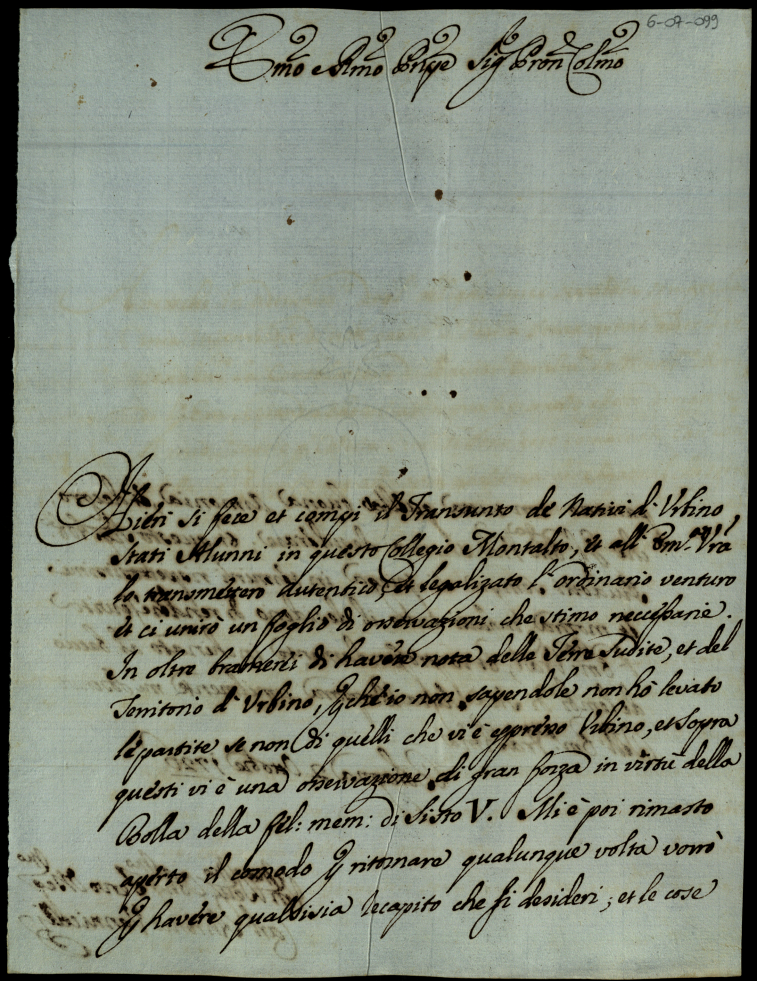 6-07-099
Emo e Rmo Prnpe Sig Pron Colmo
Hieri si fece et compì il Transunto de Nativi di Urbino
stati Alunni in questo Collegio Montalto, et all' Emza Vra
lo transmetterò autentico, et legalizato l' ordinario venturo
et ci unirò un foglio di osservazioni che stimo necessarie.
In oltre bramerei di havere nota delle Terre Sudite, et del
Territorio d' Urbino, p che io non sapendole non hò levato
le partite se non di quelli che vi è espresso Urbino, et sopra
questi vi è una osservazione di gran forza in virtù della
Bolla della fel: mem: di Sisto V. Mi è poi rimasto
aperto il comodo p ritornare qualunque volta vorrò
p havere qualsisia recapito che si desideri; et le cose